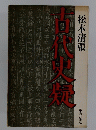 松本清張
古代史疑